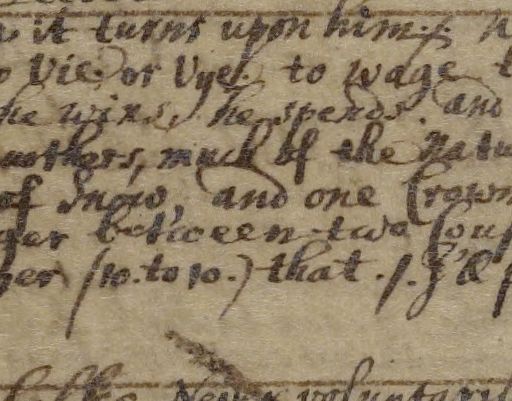 it turns upon him. /.
Vie, or Vye. to wage
he wins, he spends. and
mothers, much of the Natu
of Snow, and one Crown
ger between two Cous
ger (10. to 10.) that. /. &
Never voluntary